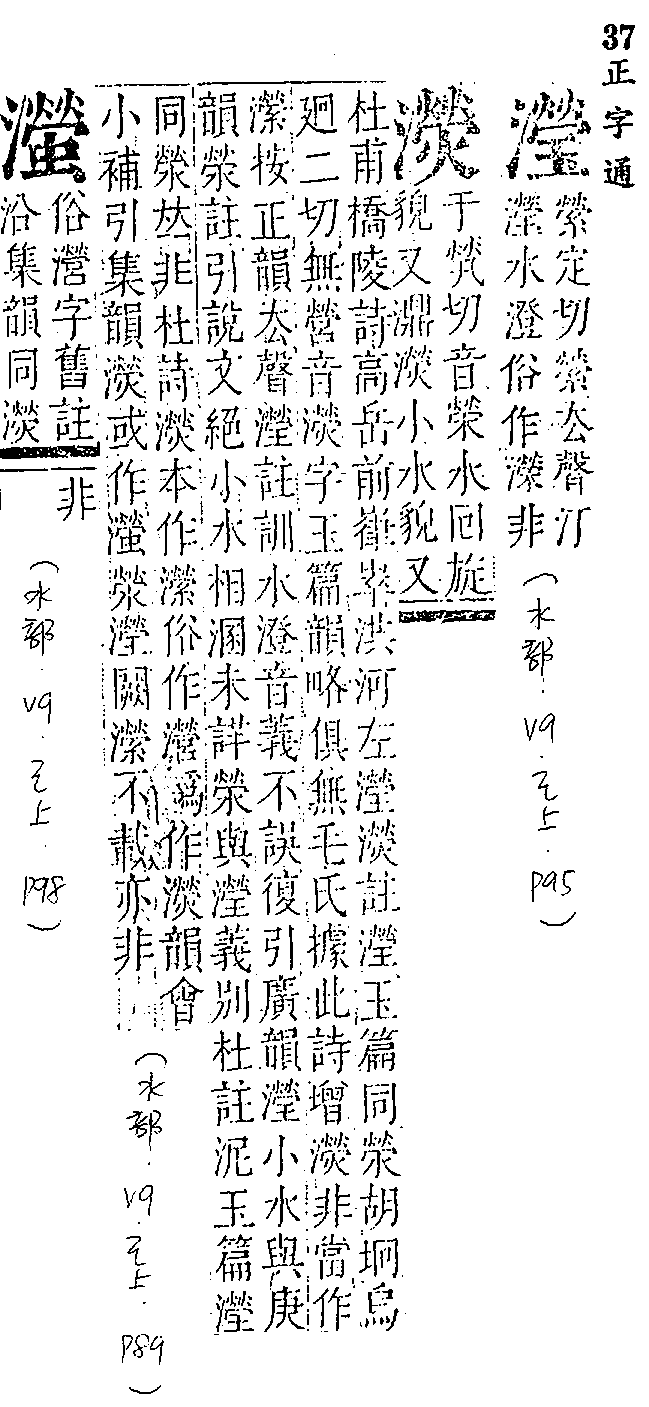 37
正字通
瀅
縈定切縈厺聲汀
瀅水澄俗作濚非
(水部.V9.巳上.P95)
濙
于煢切音榮水囘旋
貌又濎濙小水貌又
杜甫橋陵詩高岳前嵂崒洪河左瀅濙註瀅玉篇同滎胡坰烏
廻二切無營音濙字玉篇韻略俱無毛氏據此詩增濙非當作
濚按正韻厺聲瀅註訓水澄音義不誤復引廣韻瀅小水與庚
韻滎註引說文絕小水相溷未詳滎與瀅義別杜註泥玉篇瀅
同滎𠀤非杜詩濙本作濚俗作瀯譌作濙韻會
小補引集韻濙或作滎瀅闕濚不載亦非
(水部.V9.巳上.P89)
俗瀯字舊註非
沿集韻同濙
(水部.V9.巳上.P98)